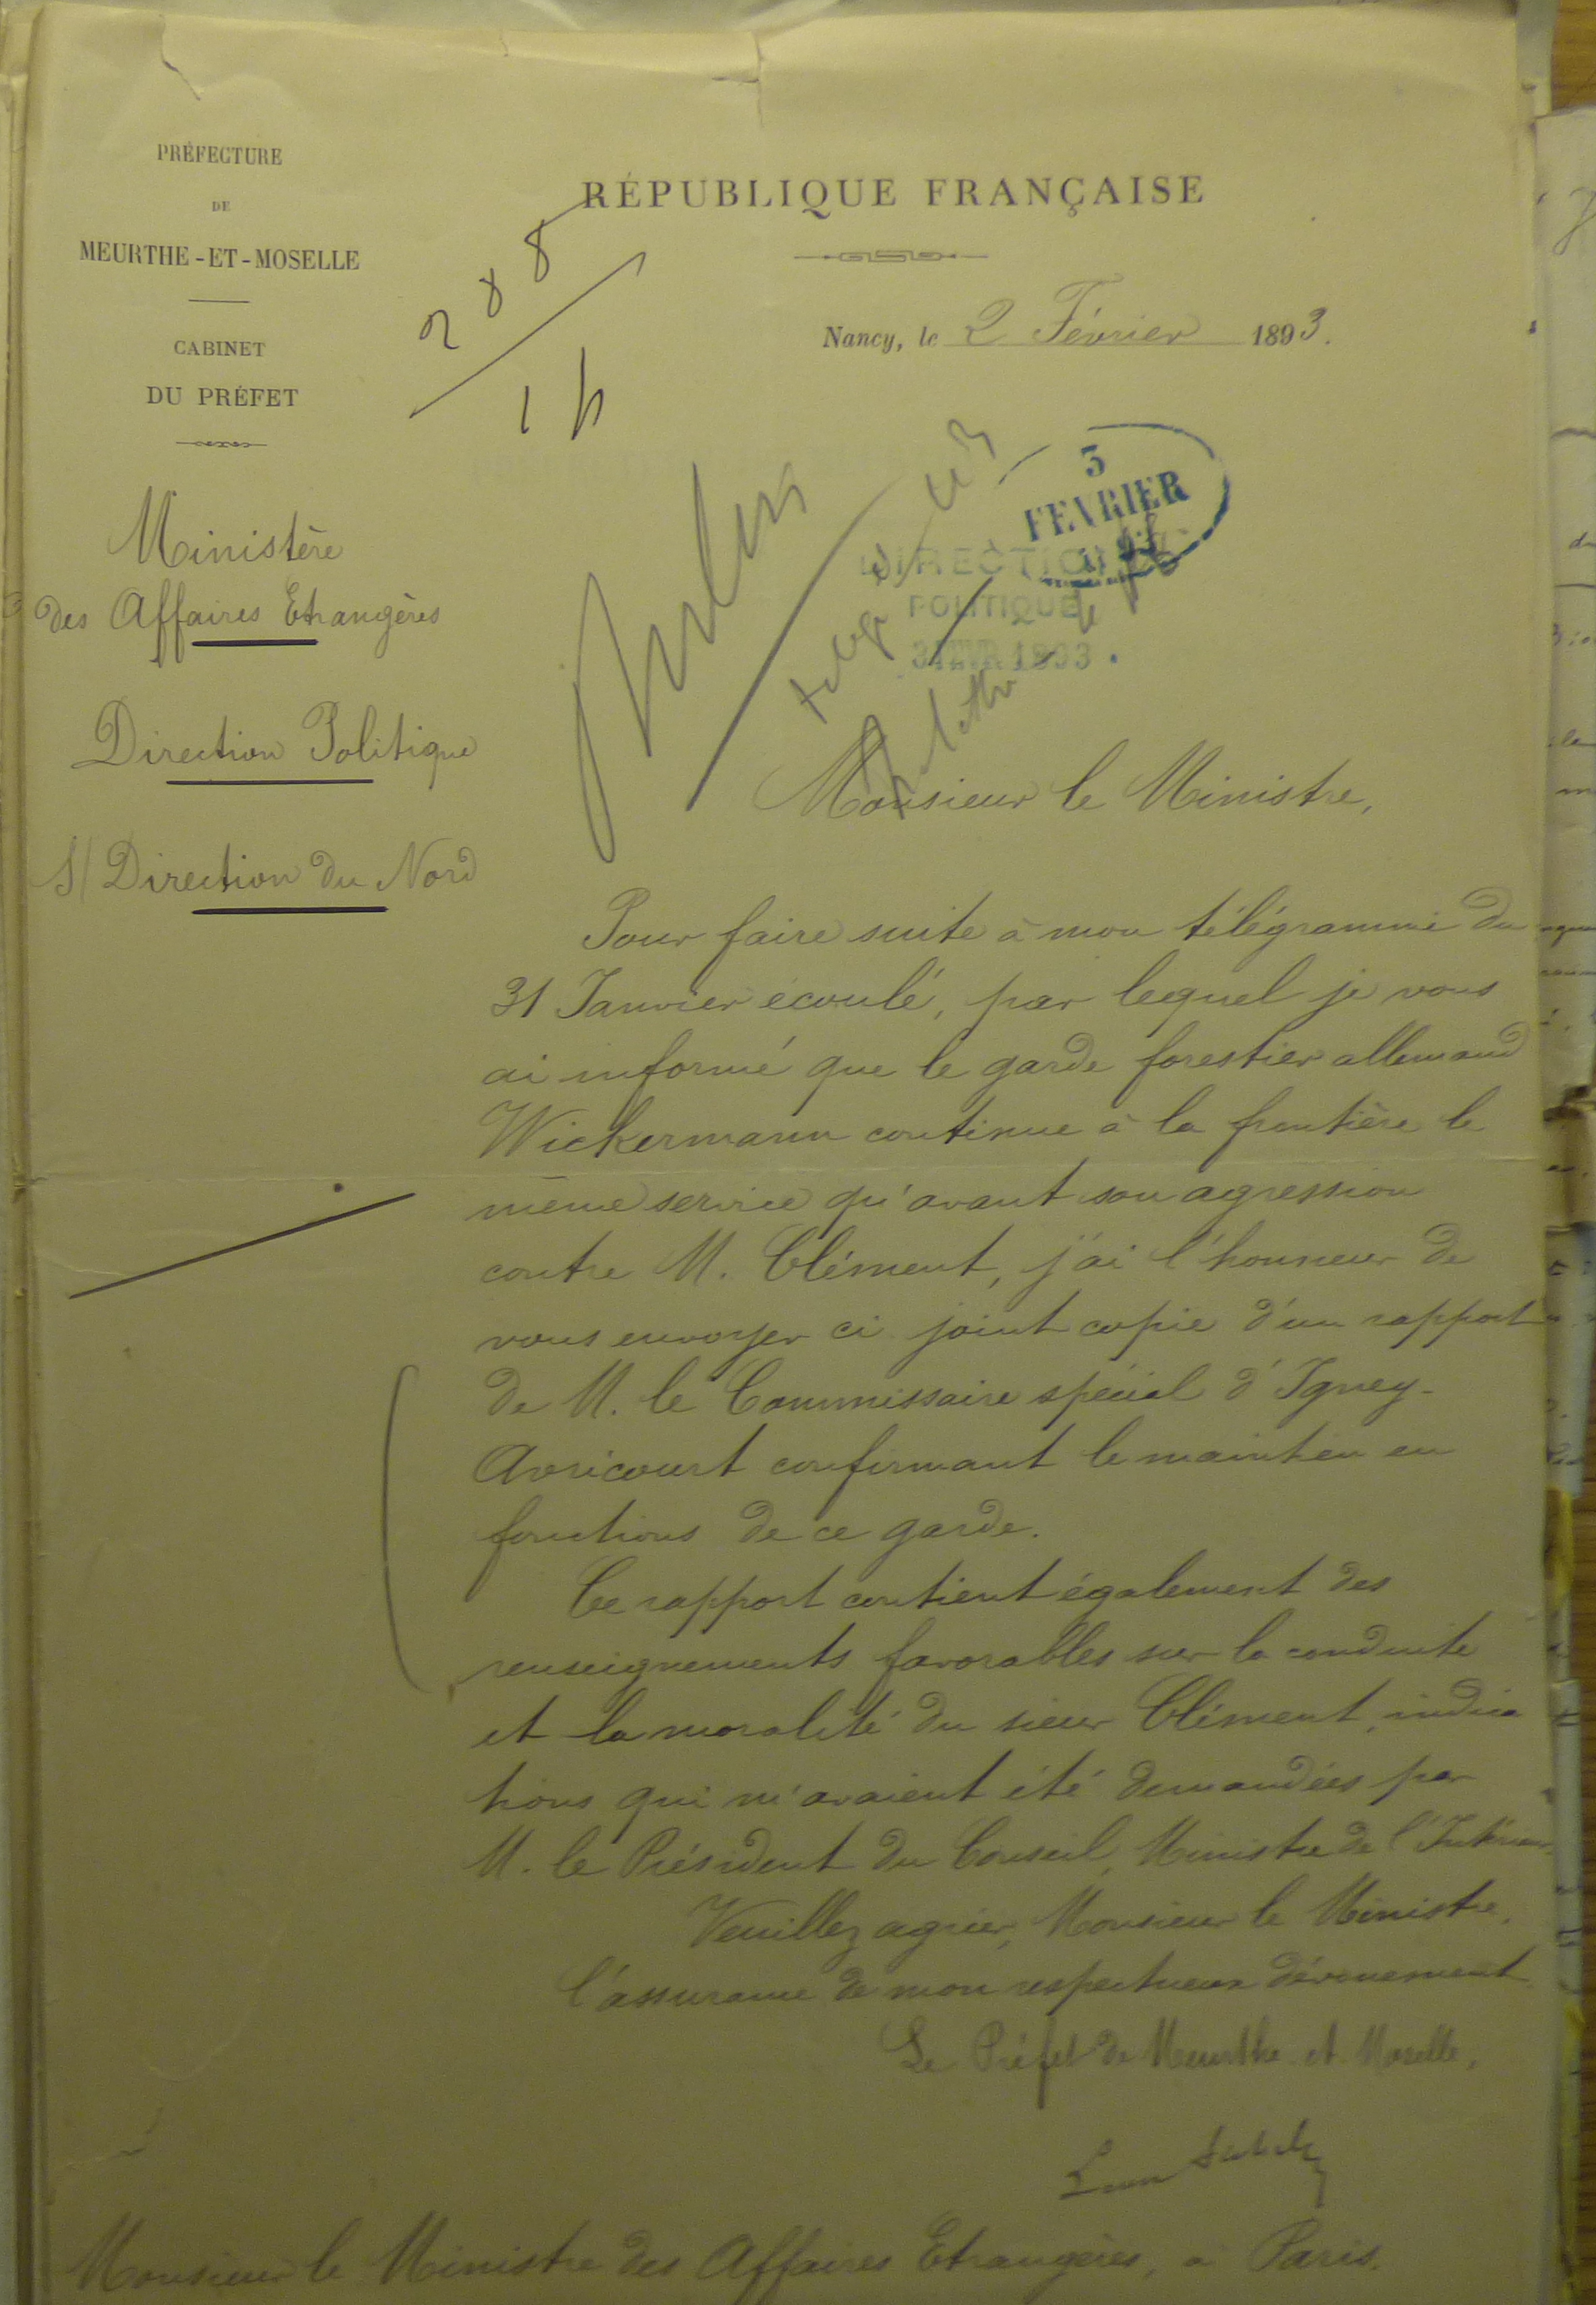 PRÉFECTURE
DE
MEURTHE-ET-MOSELLE
CABINET
DU PRÉFET
RÉPUBLIQUE FRANÇAISE
Nancy, le 2 Février 1893.
288
3
FEVRIER
DIRECTION
POLITIQUE
3 FEVR 1893
Ministère
des Affaires Etrangères
Direction Politique
S/ Direction du Nord
Monsieur le Ministre,
Pour faire suite à mon télégramme du
31 Janvier écoulé, par lequel je vous
ai informé que le garde forestier allemand
Wickermann continue à la frontière le
même service qu'avant son agression
contre M. Clément, j'ai l'honneur de
vous envoyer ci joint copie d'un rapport
de M. le Commissaire spécial d'Igney-
Avricourt confirmant le maintien en
fonctions de ce garde.
Ce rapport contient également des
renseignements favorables sur la conduite
et la moralité du sieur Clément, indica
tions qui m'avaient été demandées par
M. le Président du Conseil, Ministre de l'Intérieur.
Veuillez agréer, Monsieur le Ministre,
l'assurance de mon respectueux dévouement.
Le Préfet de Meurthe et Moselle,
Monsieur le Ministre des Affaires Etrangères, à Paris.